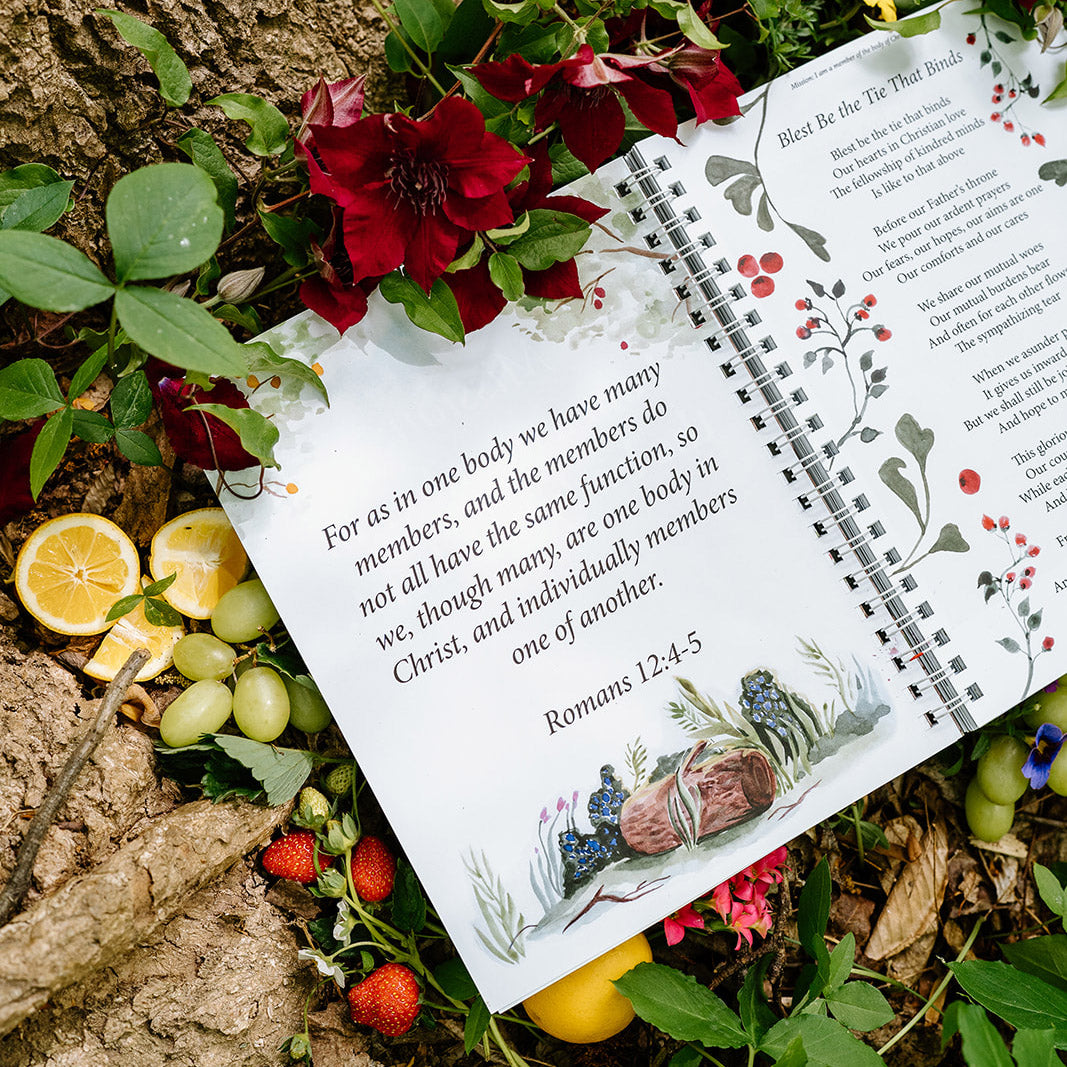 For as in one body we have many
members, and the members do
not all have the same function, so
we, though many, are one body in
Christ, and individually members
one of another.
Romans 12:4-5
Mission: I am a member of the body of
Blest Be the Tie That Binds
Blest be the tie that binds
Our hearts in Christian love
The fellowship of kindred minds
Is like to that above
Before our Father's throne
We pour our ardent prayers
Our fears, our hopes, our aims are one
Our comforts and our cares
We share our mutual woes
Our mutual burdens bear
And often for each other flows
The sympathizing tear
When we asunder
It gives us inward
But we shall still be
And hope to
This glorious
Our
While each
And